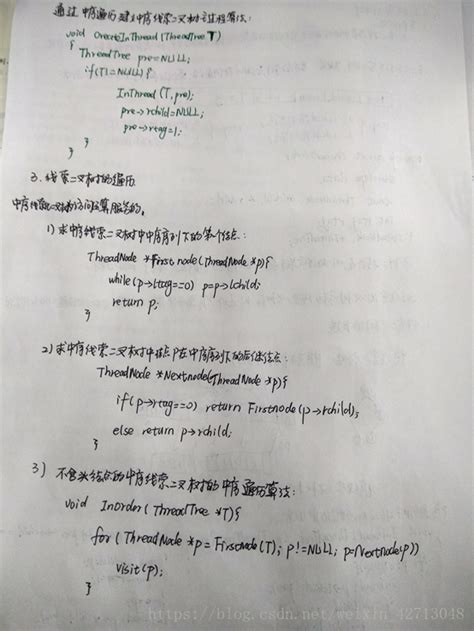 通过中序遍历建立中序线索二叉树的主过程算法:
void CreateInThread(ThreadTree T)
{ ThreadTree pre=NULL;
if(T!=NULL){
InThread(T,pre);
pre->rchild=NULL;
pre->rtag=1;
}
}
3. 线索二叉树的遍历
中序线索二叉树为访问运算服务的。
1) 求中序线索二叉树中中序序列下的第一个结点:
ThreadNode *Firstnode(ThreadNode *p){
while(p->ltag==0) p=p->lchild;
return p;
}
2) 求中序线索二叉树中结点P在中序序列下的后继结点:
ThreadNode *Nextnode(ThreadNode *p){
if(p->rtag==0) return Firstnode(p->rchild);
else return p->rchild;
}
3) 不含头结点的中序线索二叉树的中序遍历算法:
void InOrder(ThreadTree *T){
for(ThreadNode *p=Firstnode(T); p!=NULL; p=Nextnode(p))
visit(p);
}
https://blog.csdn.net/weixin_42713048